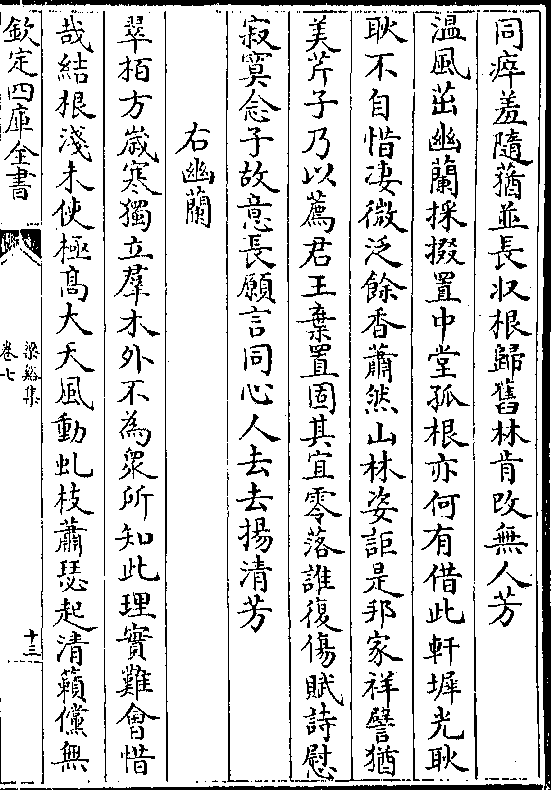 同瘁羞隨蕕並長收根歸舊林肯改無人芳
温風茁幽蘭採掇置中堂孤根亦何有借此軒墀光耿
耿不自惜淒微泛餘香蕭然山林姿詎是邦家祥譬猶
美芹子乃以薦君王棄置固其宜零落誰復傷賦詩慰
寂寞念子故意長願言同心人去去揚清芳
右幽蘭
翠栢方嵗寒獨立羣木外不為衆所知此理實難會惜
哉結根淺未使極髙大天風動虬枝蕭瑟起清籟儻無
欽定四庫全書
梁谿集
卷七
十三